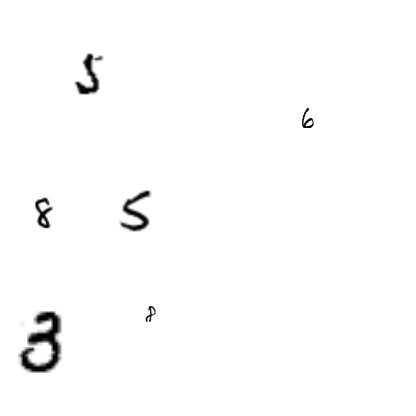 5
6
8 5
3 8